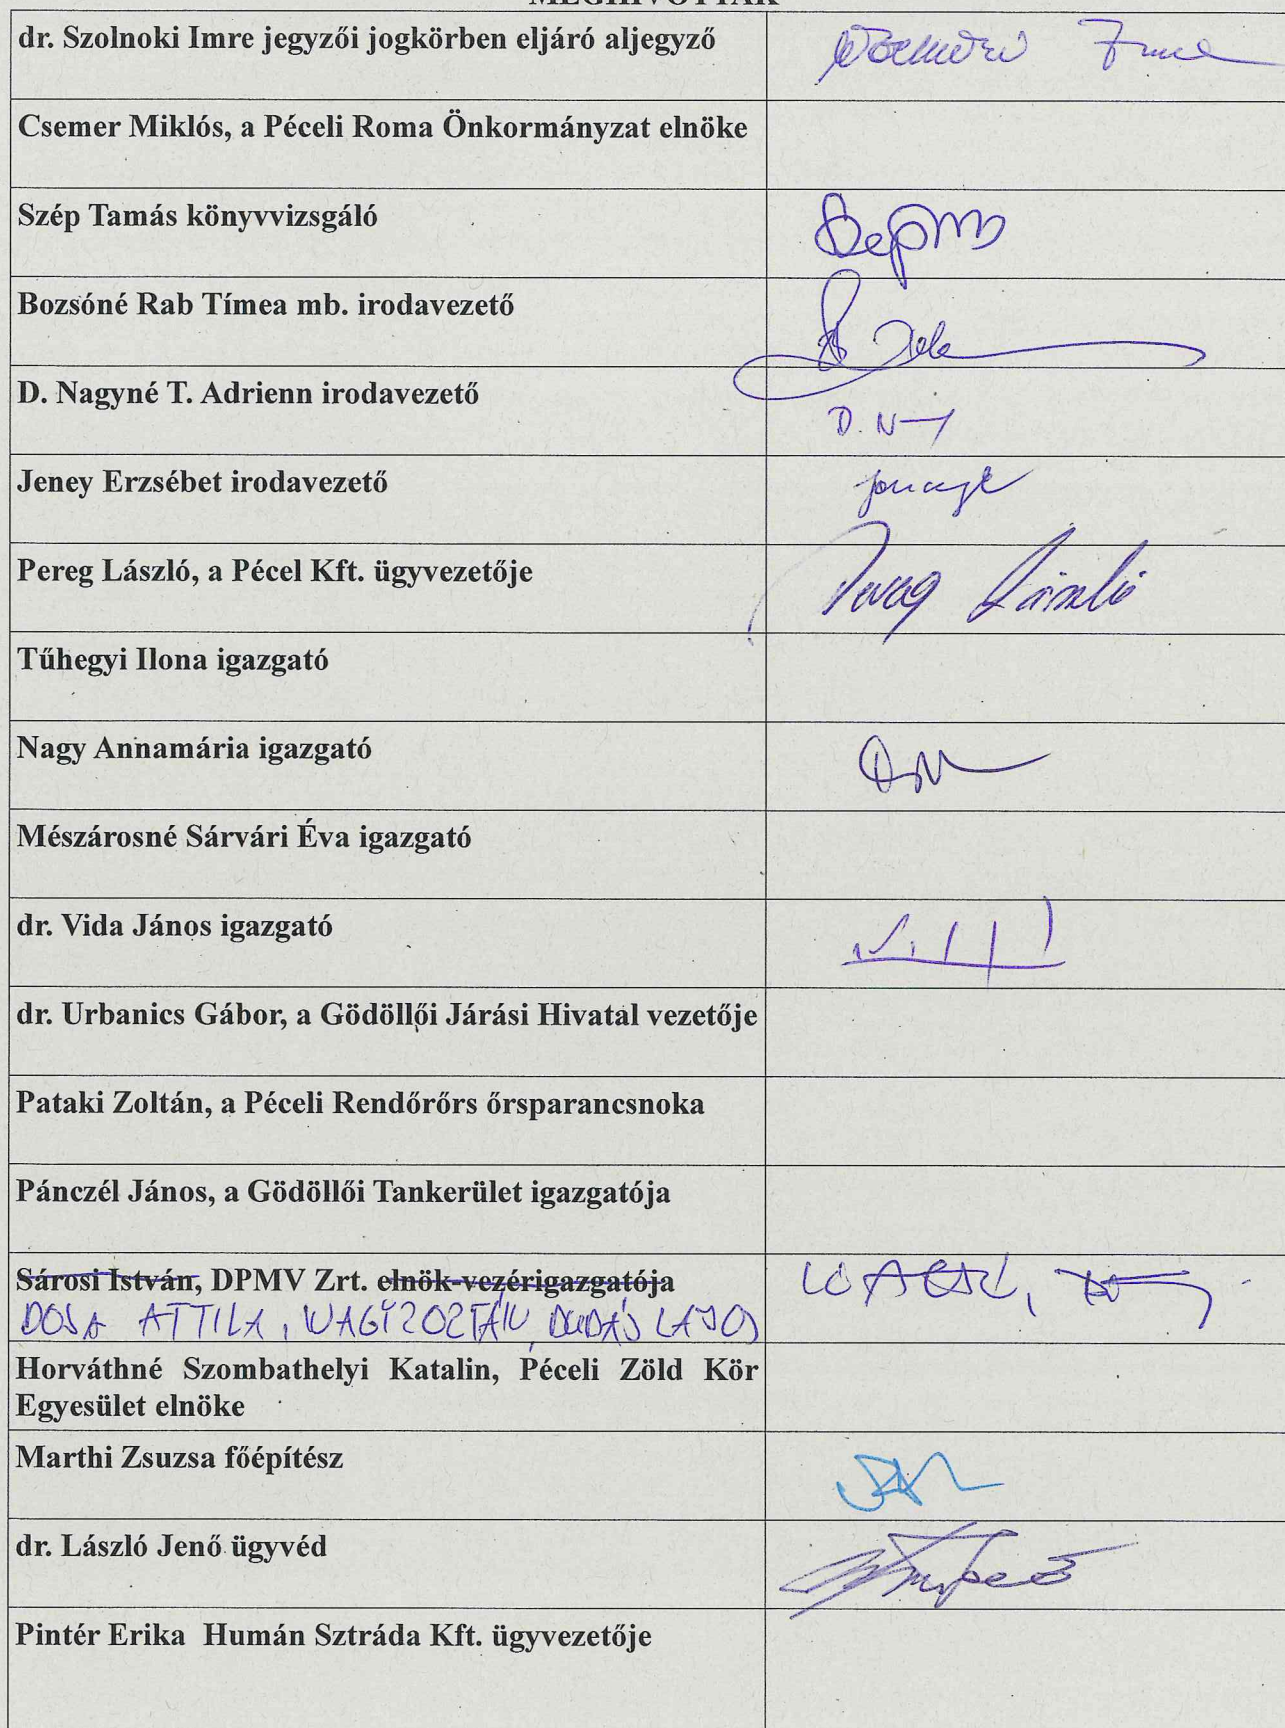 MEGHÍVOTTAK
dr. Szolnoki Imre jegyzői jogkörben eljáró aljegyző
Csemer Miklós, a Péceli Roma Önkormányzat elnöke
Szép Tamás könyvvizsgáló
Bozsóné Rab Tímea mb. irodavezető
D. Nagyné T. Adrienn irodavezető
D. N
Jeney Erzsébet irodavezető
Pereg László, a Pécel Kft. ügyvezetője
Pereg László
Tűhegyi Ilona igazgató
Nagy Annamária igazgató
Mészárosné Sárvári Éva igazgató
dr. Vida János igazgató
dr. Urbanics Gábor, a Gödöllői Járási Hivatal vezetője
Pataki Zoltán, a Péceli Rendőrőrs őrsparancsnoka
Pánczél János, a Gödöllői Tankerület igazgatója
Sárosi István, DPMV Zrt. elnök-vezérigazgatója
DOSA ATTILA, NAGY ZOLTÁN, DUDÁS LAJOS
Horváthné Szombathelyi Katalin, Péceli Zöld Kör
Egyesület elnöke
Marthi Zsuzsa főépítész
dr. László Jenő ügyvéd
Pintér Erika Humán Sztráda Kft. ügyvezetője